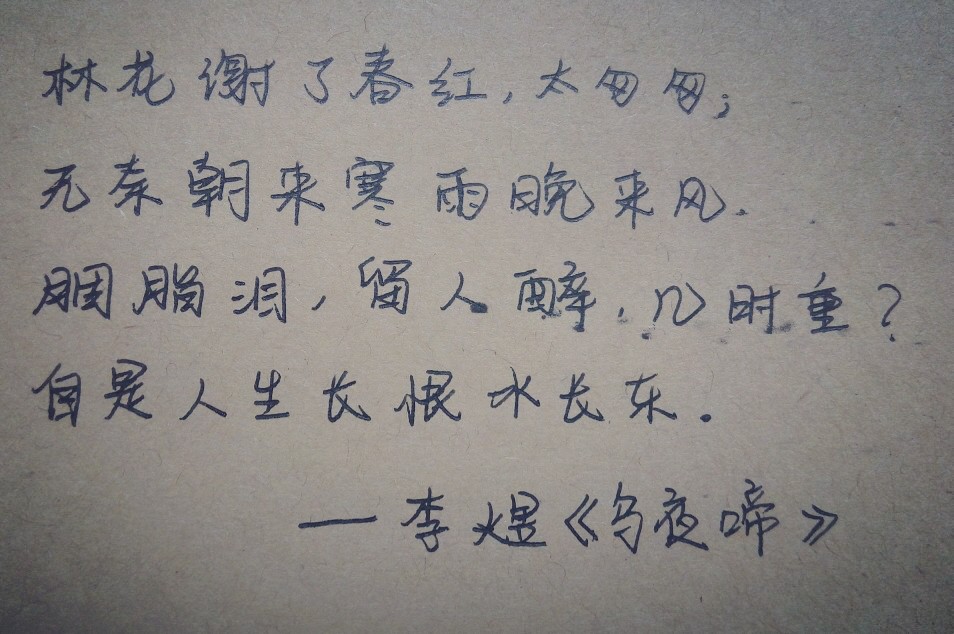 林花谢了春红，太匆匆；
无奈朝来寒雨晚来风．
胭脂泪，留人醉，几时重？
自是人生长恨水长东。
—李煜《乌夜啼》